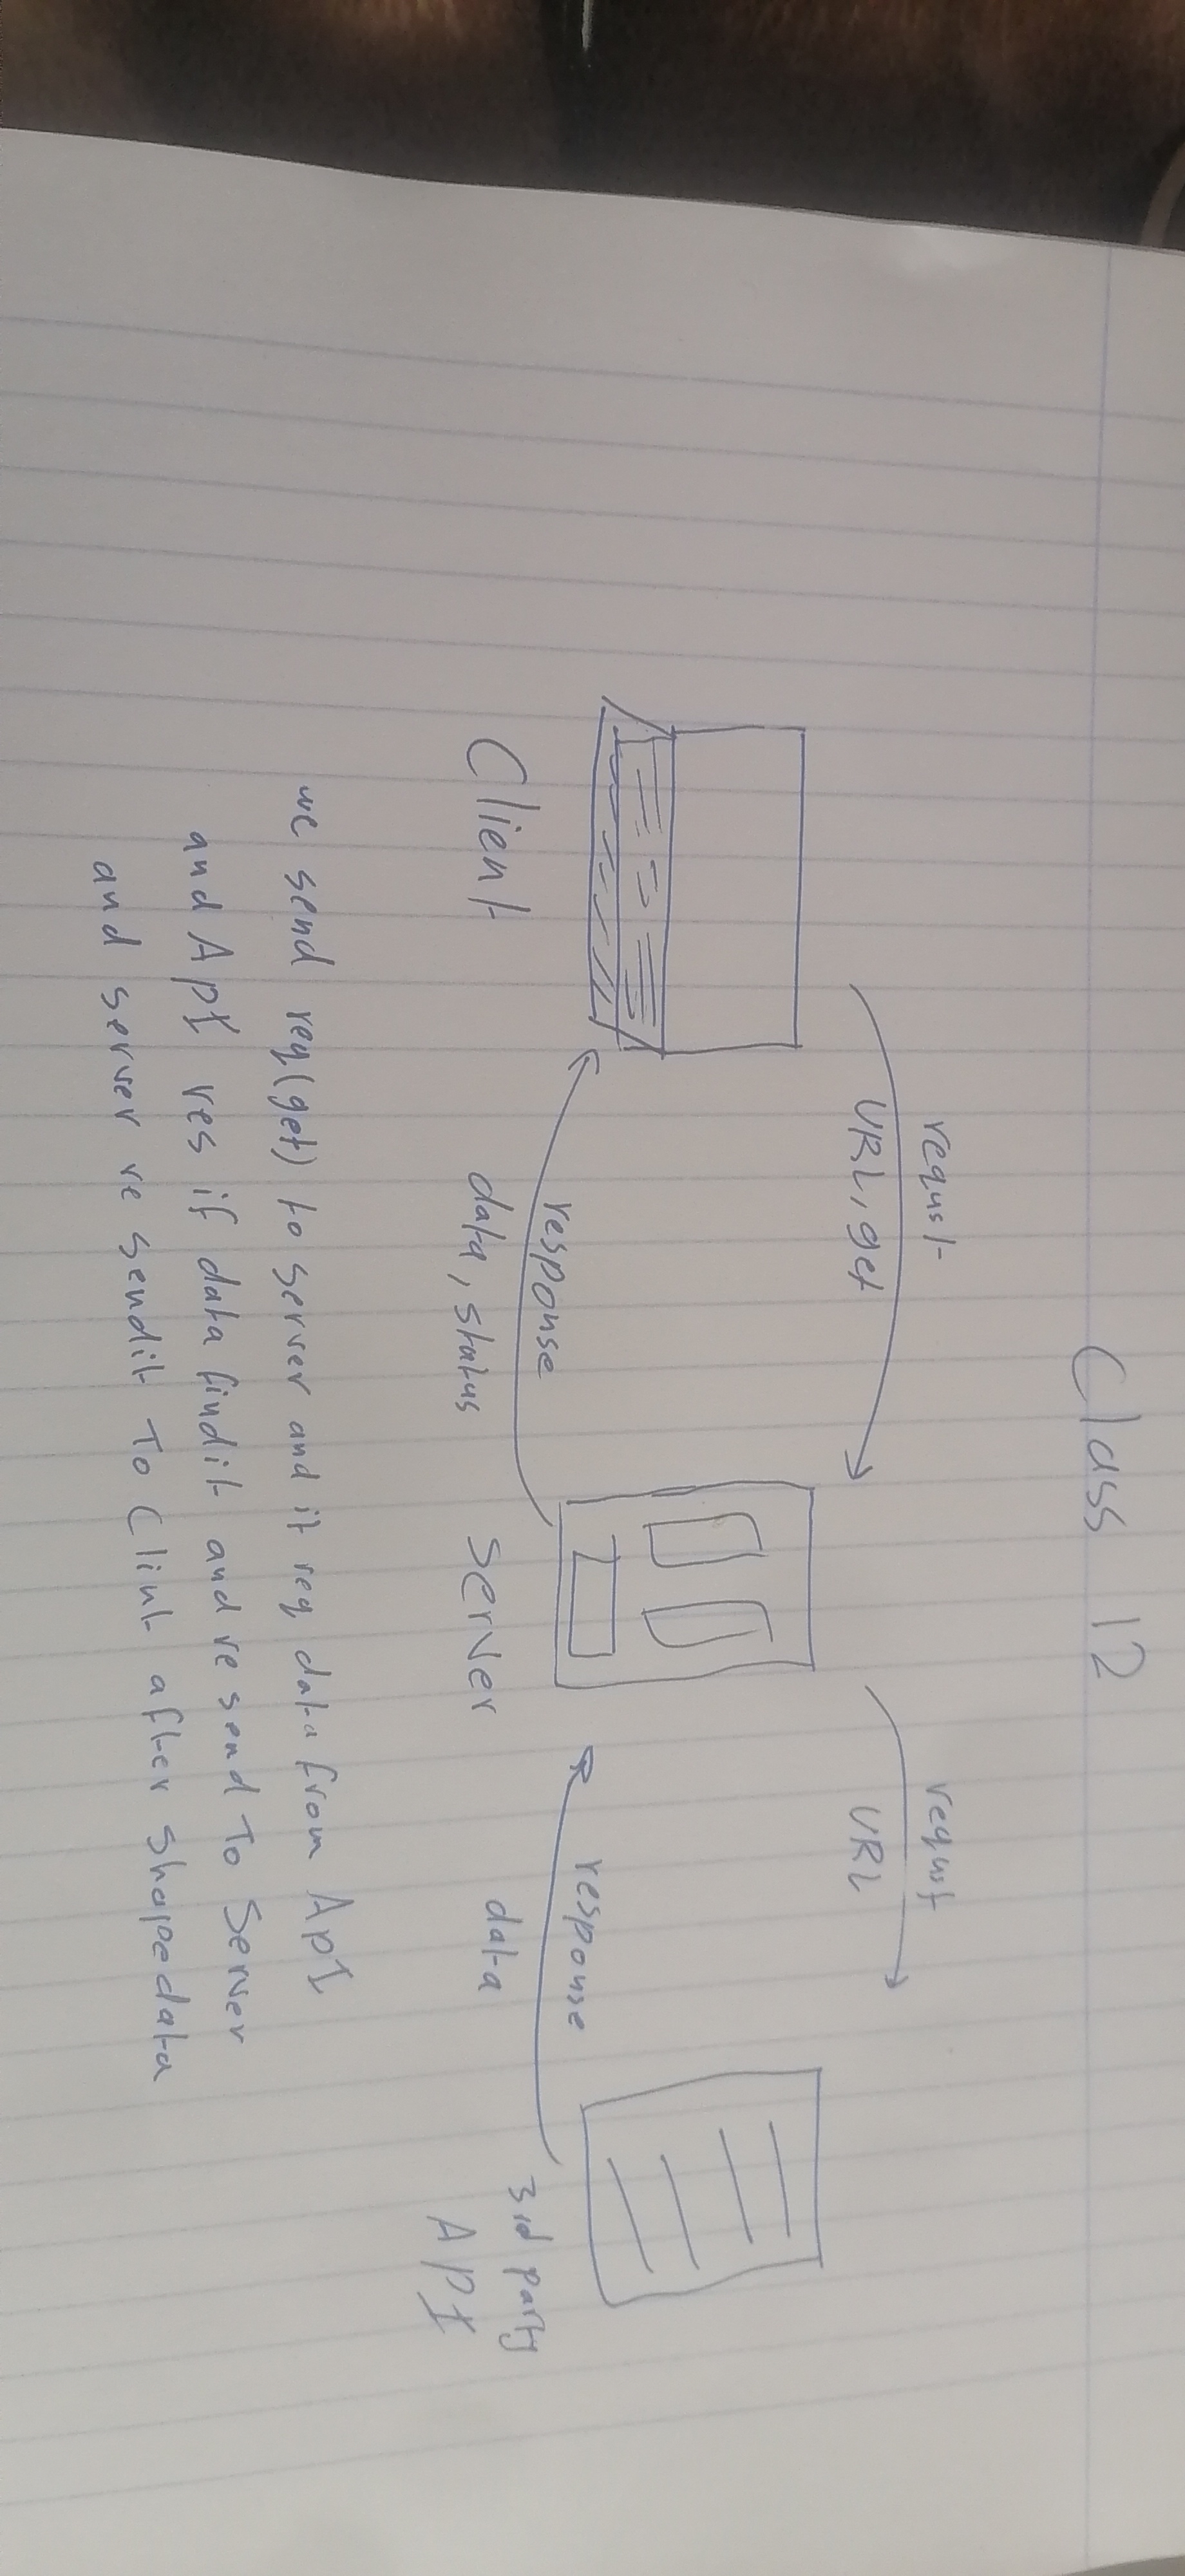 Class 12
requst
URL, get
requst
URL
response
data, status
response
data
Client
server
3rd party
API
we send req(get) to server and it req data from ApI
and ApI res if data findit and re send To Server
and server re sendit To Clint after shapedata